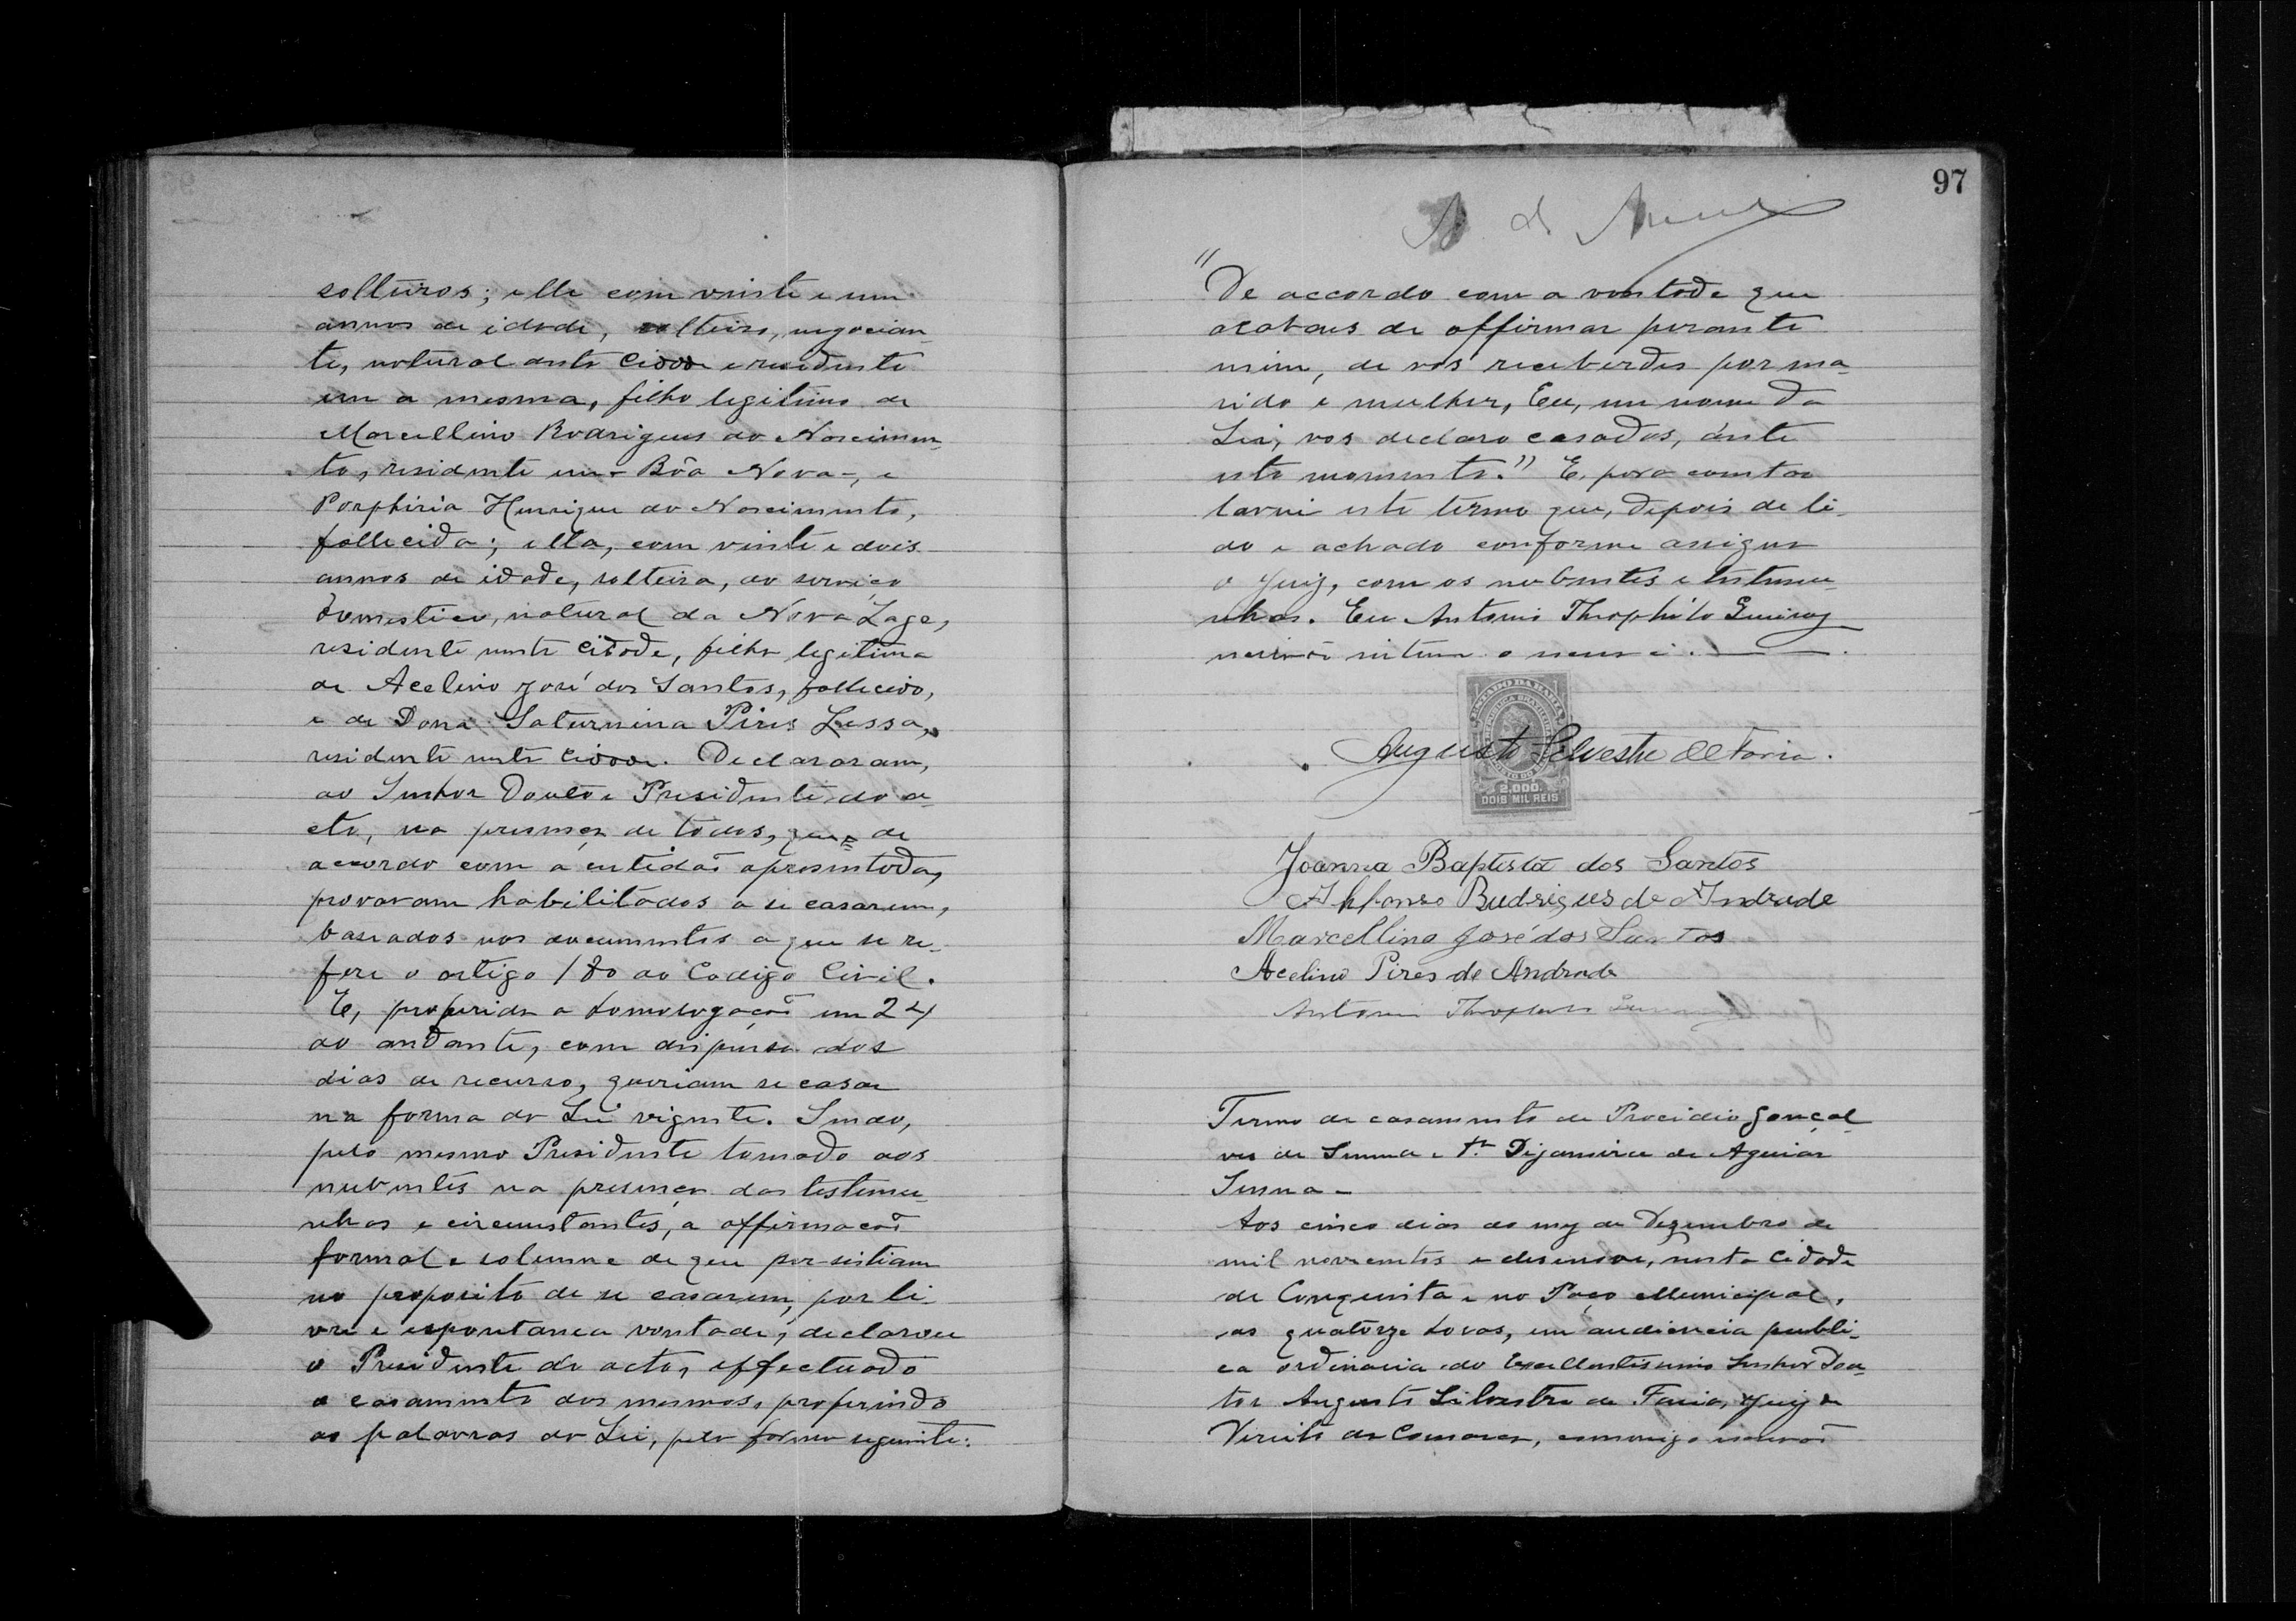 solteiros; elle com vinte e um
annos de idade, solteiro, negocian-
te, natural desta Cidade e residente
em a mesma, filho legitimo de
Marcellino Rodrigues do Nascimen-
to, residente em - Bôa Nova -, e
Porphiria Henrique do Nascimento,
fallecida; ella, com vinte e dois
annos de idade, solteira, do serviço
domestico, natural da Nova Lage,
residente nesta Cidade, filha legitima
de Acelino José dos Santos, fallecido,
e de Dona Saturnina Pires Lessa,
residente nesta Cidade. Declararam,
ao Senhor Doutor Presidente do a-
cto, na presença de todos, que de
accordo com a certidão apresentada,
provavam habilitados a se casarem,
baseados nos documentos a que se re-
fere o artigo 180 do Codigo Civil.
E, proferida a homologação em 24
do andante, com dispensa dos
dias de recurso, queriam se casar
na forma da Lei vigente. Sendo,
pelo mesmo Presidente tomado aos
nubentes na presença das testemu-
nhas e circumstantes, a affirmação
formal e solemne de que persistiam
no proposito de se casarem, por li-
vre e espontanea vontade, declarou
o Presidente do acto, effectuado
o casamento dos mesmos, proferindo
as palavras da Lei, pela forma seguinte:
97
"De accordo com a vontade que
acabaes de affirmar perante
mim, de vos receberdes por ma-
rido e mulher, Eu, em nome da
Lei, vos declaro casados, deste
este momento." E, para constar
lavrei este termo que, depois de li-
do e achado conforme assigna
o Juiz, com os nubentes e testemu-
nhas. Eu Antonio Theophilo
ESTADO DA BAHIA
2,000.
DOIS MIL REIS
Augusto Silvestre de Faria.
Joanna Baptista dos Santos
Affonso Rudrigues de Andrade
Marcellino José dos Santos
Acelino Pires de Andrade
Antonio Theophilo
Termo de casamento de Procidio Gonçal-
ves de Senna e D. Dejamira de Aguiar
Senna -
Aos cinco dias do mez de Dezembro de
mil novecentos e desenove, nesta Cidade
de Conquista e no Paço Municipal,
as quatorze horas, em audiencia publi-
ca ordinaria do Excellentissimo Senhor Dou-
tor Augusto Silvestre de Faria, Juiz de
Direito da Comarca, commigo escrivão